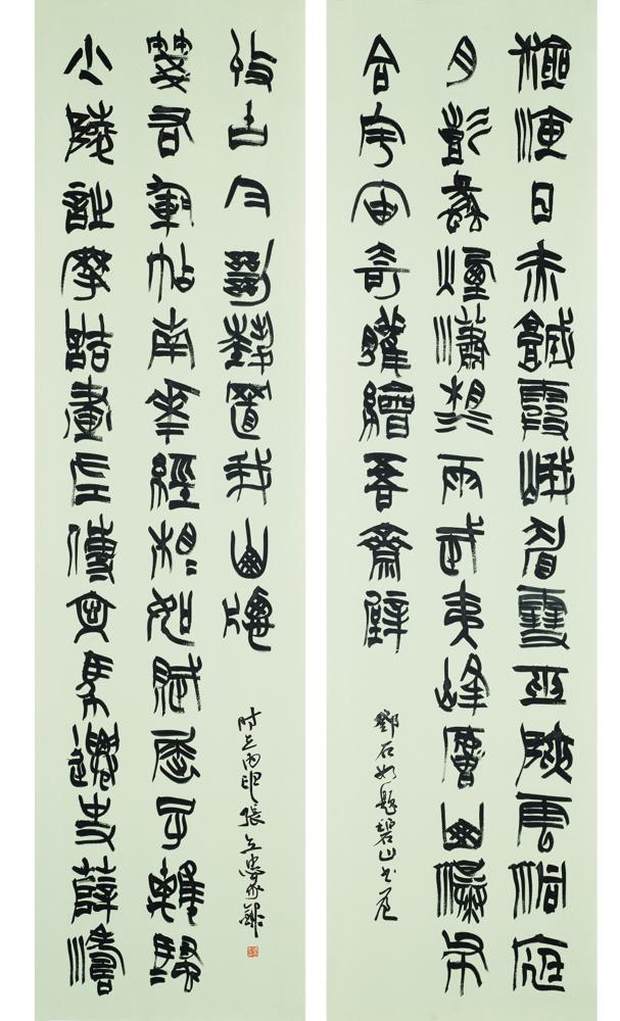 滄海日赤城霞峨眉雪巫峽雲洞庭
月彭蠡煙瀟湘雨武夷峰廬山瀑布
合宇宙奇觀繪吾齋壁
鄧石如題碧山書屋
少陵詩摩詰畫左傳文馬遷史薛濤
箋右軍帖南華經相如賦屈子離騷
收古今絕藝置我山窗
時在丙申張立